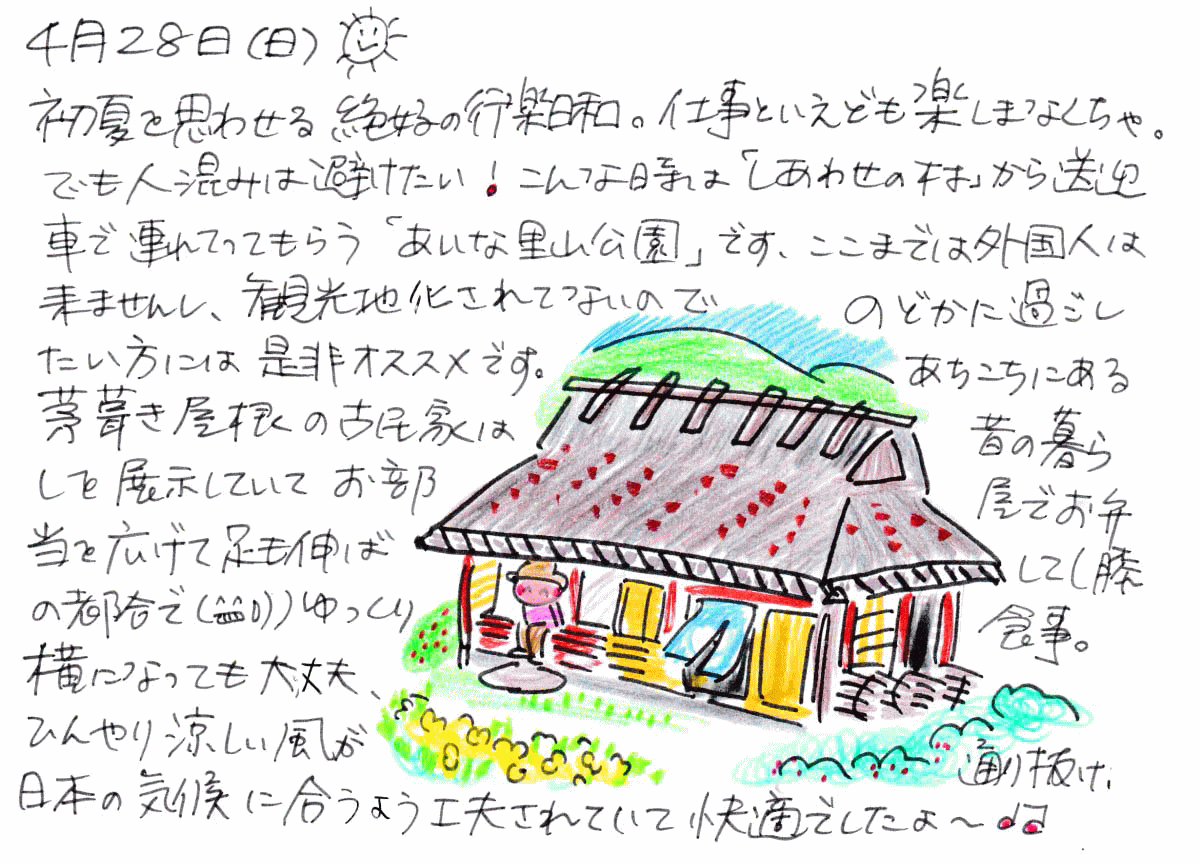 4月28日(日)
初夏を思わせる絶好の行楽日和。仕事といえども楽しまなくちゃ。
でも人混みは避けたい!こんな時は「しあわせの村」から送迎
車で連れてってもらう「あいな里山公園」です、ここまでは外国人は
来ませんし、観光地化されてないので のどかに過ごし
たい方には是非オススメです。 あちこちにある
茅葺き屋根の古民家は 昔の暮ら
しを展示していてお部 屋でお弁
当を広げて足も伸ば して(膝
の都合で ゆっくり 食事。
横になっても大丈夫、
ひんやり涼しい風が 通り抜け、
日本の気候に合うよう工夫されていて快適でしたよ〜♪♫